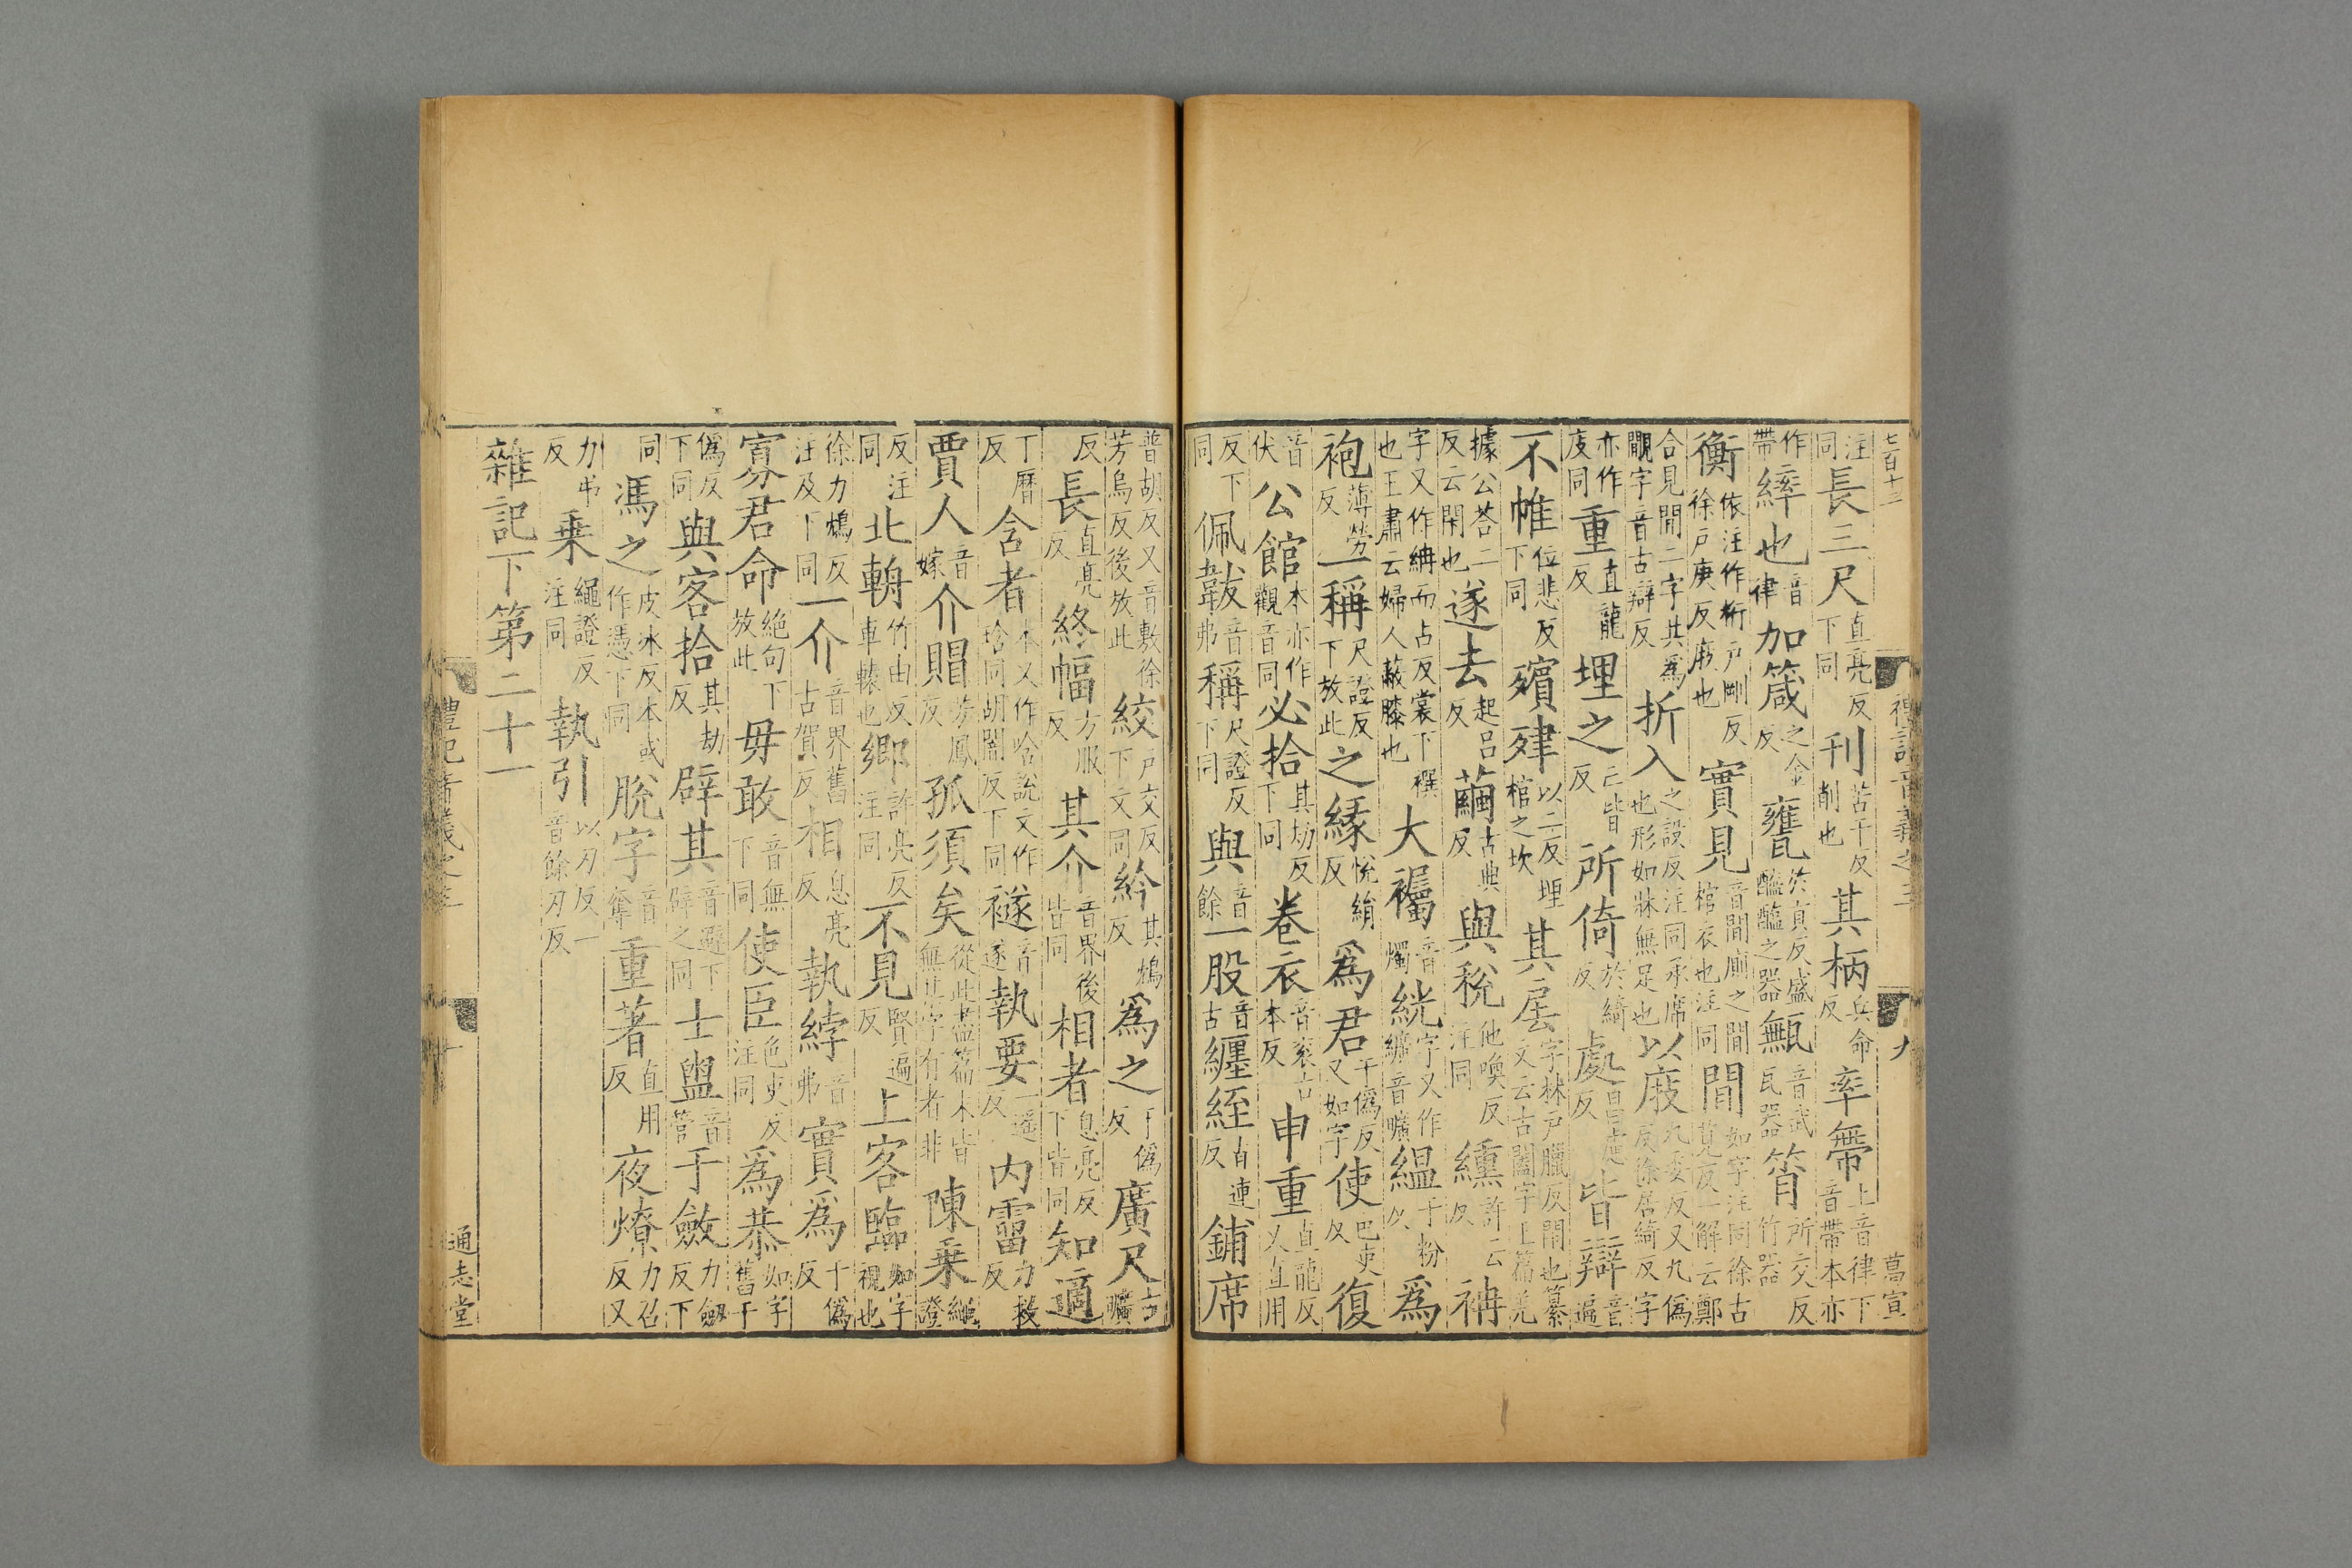 七百十三 禮記音義之三 九 葛宣
注同長三尺直亮反下同刊苦干反削也其柄兵命反率帶上音律下音帶本亦
作帶繂也音律加箴之金反甕於貢反盛醯醢之器甒音武瓦器筲所交反竹器
衡依注作桁戶剛反徐戶庚反庪也實見音間廁之間棺衣也注同間如字注同徐古莧反一解云鄭
合見間二字共為覸字音古辯反折入之設反注同承席也形如牀無足也以庪九委反又九偽反徐居綺反字
亦作庋同重直龍反埋之亡皆反所倚於綺反處昌慮反皆辯音遍
不帷位悲反下同殯肂以二反埋棺之坎其扂字林戶臘反閉也纂文云古闔字上篇羌
據公荅二反云閉也遂去起呂反繭古典反與稅他喚反注同纁許云反袡
字又作䋙而占反裳下襈也王肅云婦人蔽膝也大襡音燭絖字又作纊音曠緼于粉反為
袍薄勞反一稱尺證反下放此之緣悅絹反為君于偽反又如字使色吏反復
音伏公館本亦作觀音同必拾其劫反下同卷衣音衮古本反申重直龍反又直用
反下同佩韍音弗稱尺證反下同與音餘一股音古纏絰直連反鋪席
普胡反又音敷徐芳烏反後放此絞戶交反下文同紟其鴆反為之于偽反廣尺古曠
反長直亮反終幅方服反其介音界後皆同相者息亮反下皆同知適
丁曆反含者本又作唅說文作琀同胡闇反下同襚音遂執要一遙反内霤力救反
賈人音嫁介賵芳鳳反孤須矣從此盡篇末皆無某字有者非陳乗繩證
反注同北輈竹由反車轅也鄉許亮反注同不見賢遍反上客臨如字視也
徐力鴆反注及下同一介音界舊古賀反相息亮反執綍音弗實為于偽反
寡君命絕句下放此毋敢音無下同使臣色吏反注同為恭如字舊于
偽反下同與客拾其劫反辟其音避下辟之同士盥音管于斂力劒反下
同馮之皮冰反本或作憑下同脫字音奪重著直用反夜燎力召反又
力弔反乗繩證反注同執引以刃反一音餘刃反
雜記下第二十一
禮記音義之三 十 通志堂